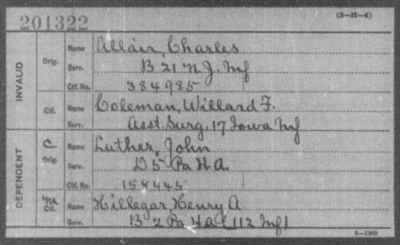 201322
(3-H-4)
INVALID
Orig. Name Allair, Charles
Serv. B 21 N.J. Inf
Ctf. No. 384985
Ctf. Name Coleman, Willard F.
Serv. Asst. Surg. 17 Iowa Inf
DEPENDENT
C Orig. Name Luther, John
Serv. D 5 Pa H A.
Ctf. No. 154445
Ctf. Name Hillegar, Henry A
Serv. B 2 Pa H A (112 Inf)